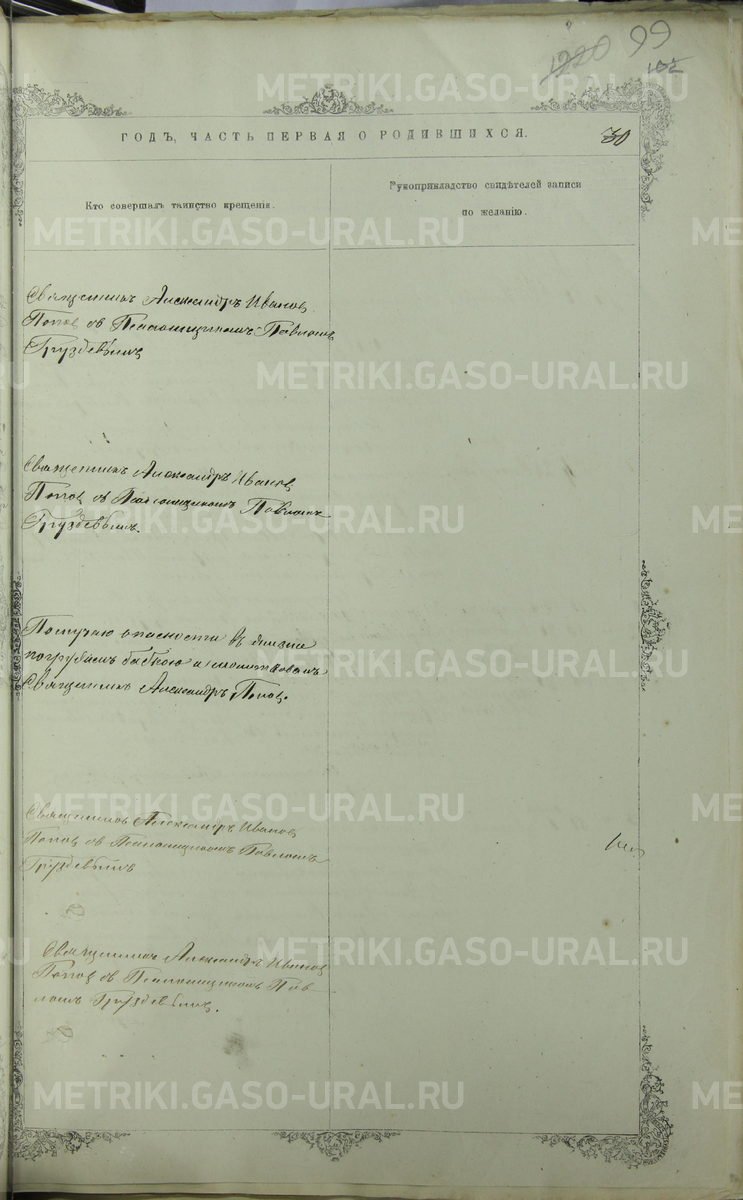 1220 99
102
ГОДЪ, ЧАСТЬ ПЕРВАЯ О РОДИВШИХСЯ.
30
Кто совершалъ таинство крещенія.
Рукоприкладство свидѣтелей записи
по желанію.
Священникъ Александръ Иванов
Попов съ Псаломщикомъ Павломъ
Груздевымъ
Священникъ Александръ Иванов
Попов съ Псаломщикомъ Павломъ
Груздевымъ.
По случаю опасности къ жизни
погружёнъ бабкою а
Священникъ Александръ Попов.
Священникъ Александръ Иванов
Попов съ Псаломщикомъ Павломъ
Груздевымъ
Священникъ Александръ Иванов
Попов съ Псаломщикомъ Пав-
ломъ Груздевымъ.
METRIKI.GASO-URAL.RU
METRIKI.GASO-URAL.RU
METRIKI.GASO-URAL.RU
METRIKI.GASO-URAL.RU
METRIKI.GASO-URAL.RU
METRIKI.GASO-URAL.RU
METRIKI.GASO-URAL.RU
METRIKI.GASO-URAL.RU